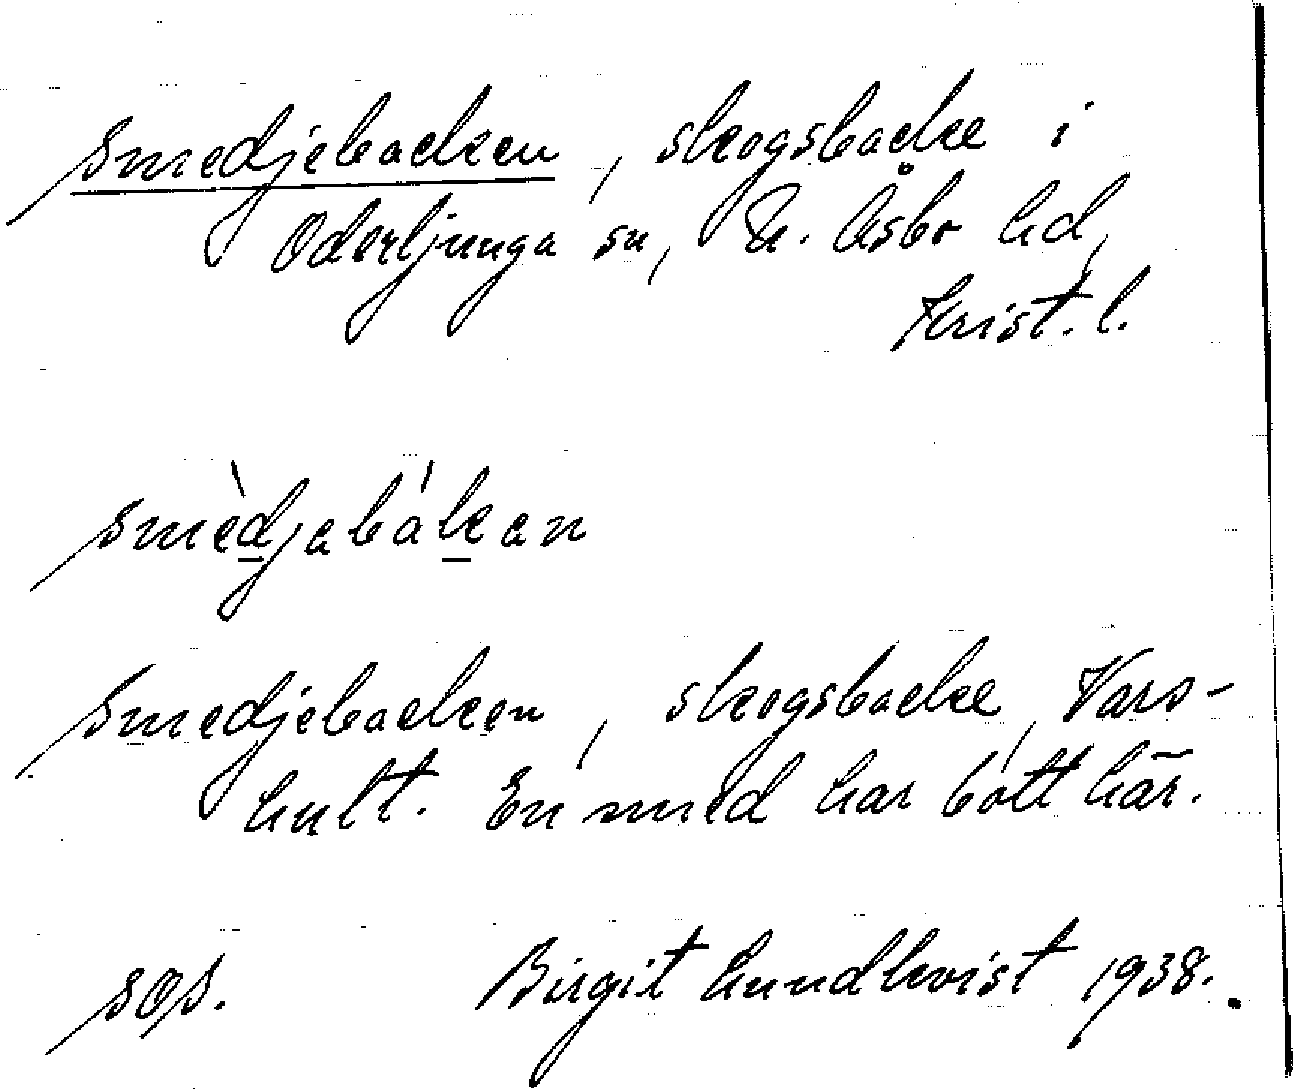 Smedjebacken, skogsbacke i
Oderljunga sn, N. Åsbo hd,
Krist. l.
smèdjabákan
Smedjebacken, skogsbacke, Vars-
hult. En smed har bott här.
SOS. Birgit Lundkvist 1938.